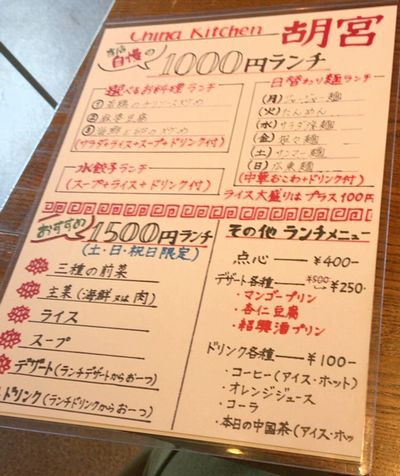 China Kitchen 胡宮
当店自慢の
1000円ランチ
選べるお料理ランチ
② 麻婆豆腐
(サラダ+ライス+スープ+ドリンク付)
水餃子ランチ
(スープ+ライス+ドリンク付)
日替わり麺ランチ
(月)
(火) たんめん
(水)
(金) 担々麺
(土) サンマー麺
(日) 広東麺
(中華おこわ+ドリンク付)
ライス大盛りはプラス100円
おすすめ
1500円ランチ
(土・日・祝日限定)
三種の前菜
主菜(海鮮又は肉)
ライス
スープ
デザート(ランチデザートから一つ)
ドリンク(ランチドリンクから一つ)
その他 ランチメニュー
点心 ― ¥400-
デザート各種 ― ¥500 → ¥250-
・マンゴープリン
・杏仁豆腐
・紹興酒プリン
ドリンク各種 ― ¥100-
・コーヒー(アイス・ホット)
・オレンジジュース
・コーラ
・本日の中国茶(アイス・ホッ